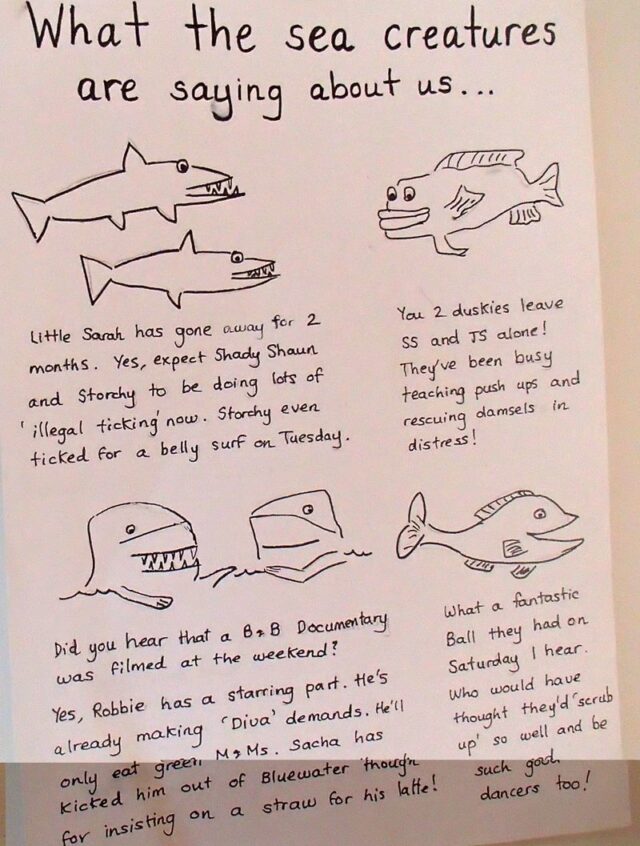 What the sea creatures
are saying about us...
Little Sarah has gone away for 2
months. Yes, expect Shady Shaun
and Storchy to be doing lots of
'illegal ticking' now. Storchy even
ticked for a belly surf on Tuesday.
You 2 duskies leave
SS and JS alone!
They've been busy
teaching push ups and
rescuing damsels in
distress!
Did you hear that a B&B Documentary
was filmed at the weekend?
Yes, Robbie has a starring part. He's
already making 'Diva' demands. He'll
only eat green M&Ms. Sacha has
kicked him out of Bluewater though
for insisting on a straw for his latte!
What a fantastic
Ball they had on
Saturday I hear.
Who would have
thought they'd 'scrub
up' so well and be
such good
dancers too!